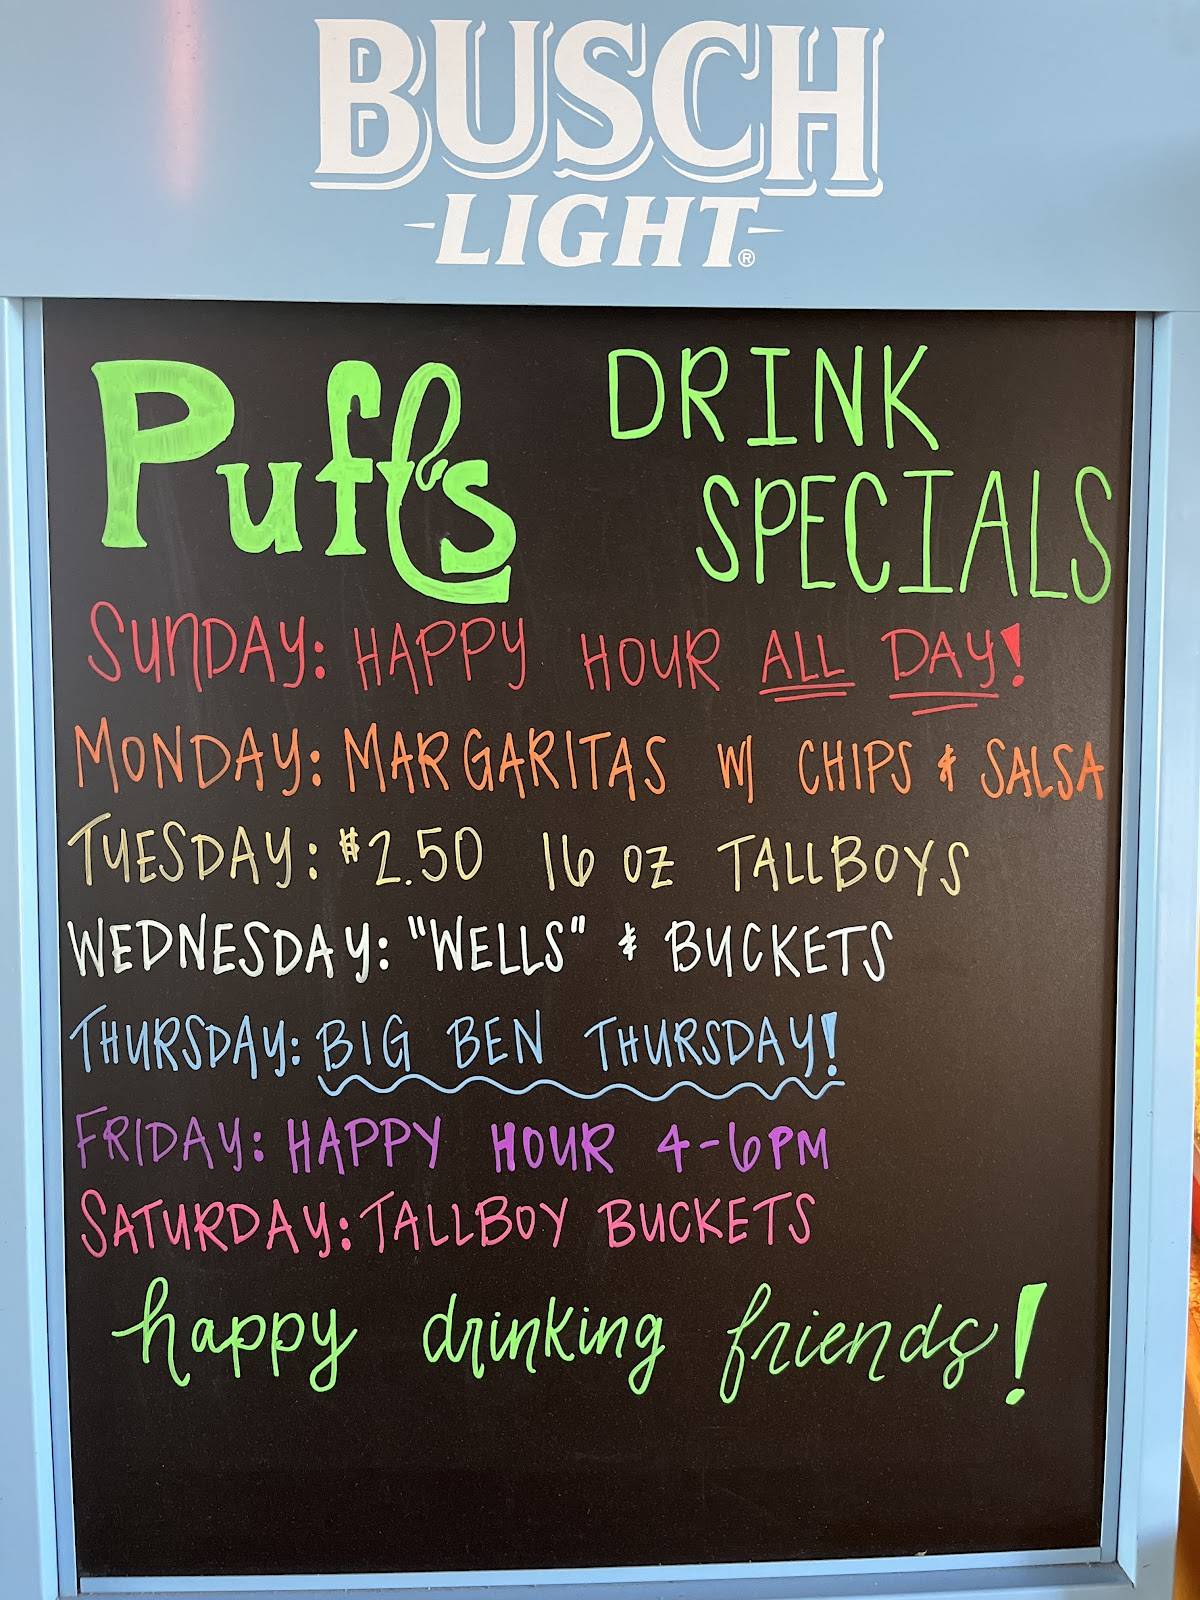 BUSCH
LIGHT®
Puff's DRINK
SPECIALS
SUNDAY: HAPPY HOUR ALL DAY!
MONDAY: MARGARITAS W/ CHIPS & SALSA
TUESDAY: $2.50 16 OZ TALLBOYS
WEDNESDAY: "WELLS" & BUCKETS
THURSDAY: BIG BEN THURSDAY!
FRIDAY: HAPPY HOUR 4-6PM
SATURDAY: TALLBOY BUCKETS
happy drinking friends!